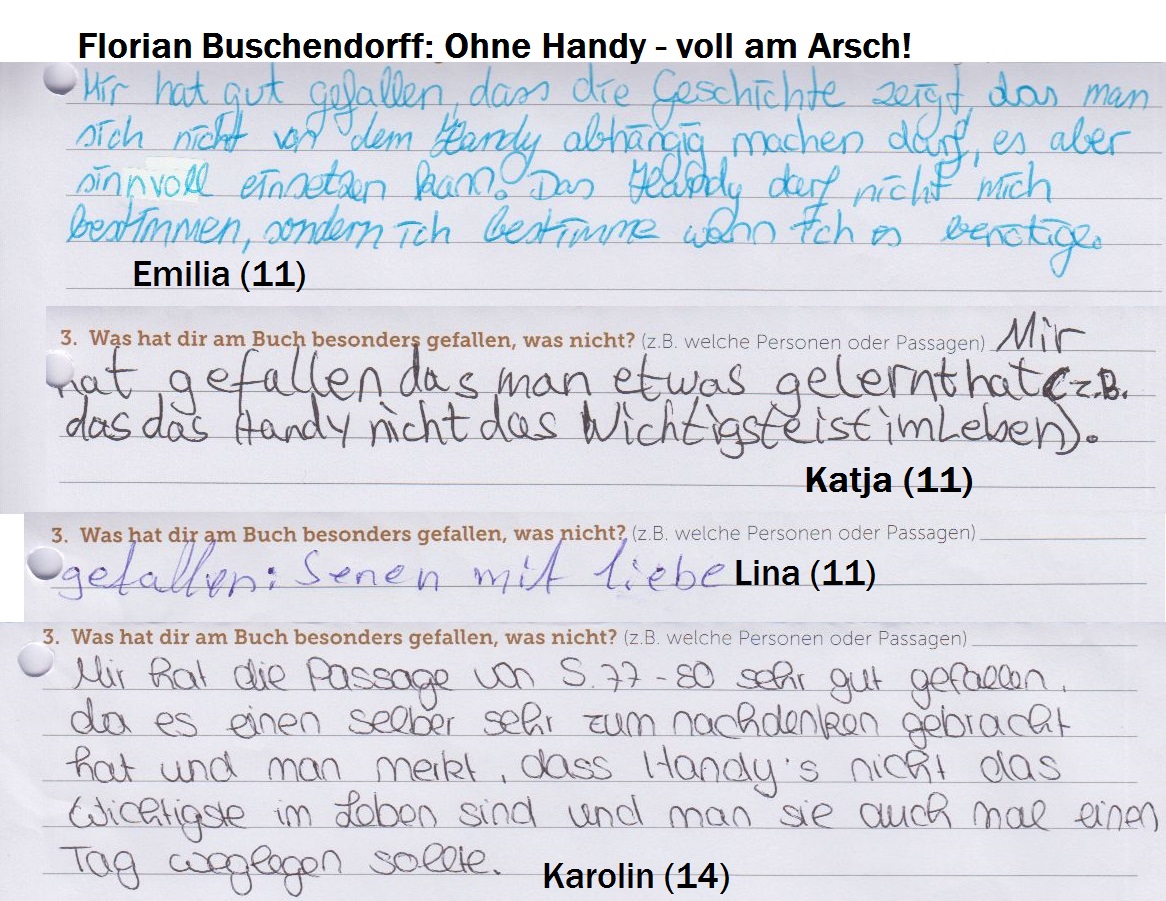 Florian Buschendorff: Ohne Handy - voll am Arsch!
Mir hat gut gefallen, dass die Geschichte zeigt, das man
sich nicht von dem Handy abhängig machen darf, es aber
sinnvoll einsetzen kann. Das Handy darf nicht mich
bestimmen, sondern ich bestimme wann ich es benötige.
Emilia (11)
3. Was hat dir am Buch besonders gefallen, was nicht? (z.B. welche Personen oder Passagen) Mir
hat gefallen das man etwas gelernt hat (z.B.
das das Handy nicht das Wichtigste ist im Leben).
Katja (11)
3. Was hat dir am Buch besonders gefallen, was nicht? (z.B. welche Personen oder Passagen)
gefallen: Senen mit liebe Lina (11)
3. Was hat dir am Buch besonders gefallen, was nicht? (z.B. welche Personen oder Passagen)
Mir hat die Passage von S. 77 - 80 sehr gut gefallen,
da es einen selber sehr zum nachdenken gebracht
hat und man merkt, dass Handy's nicht das
Wichtigste im Leben sind und man sie auch mal einen
Tag weglegen sollte.
Karolin (14)